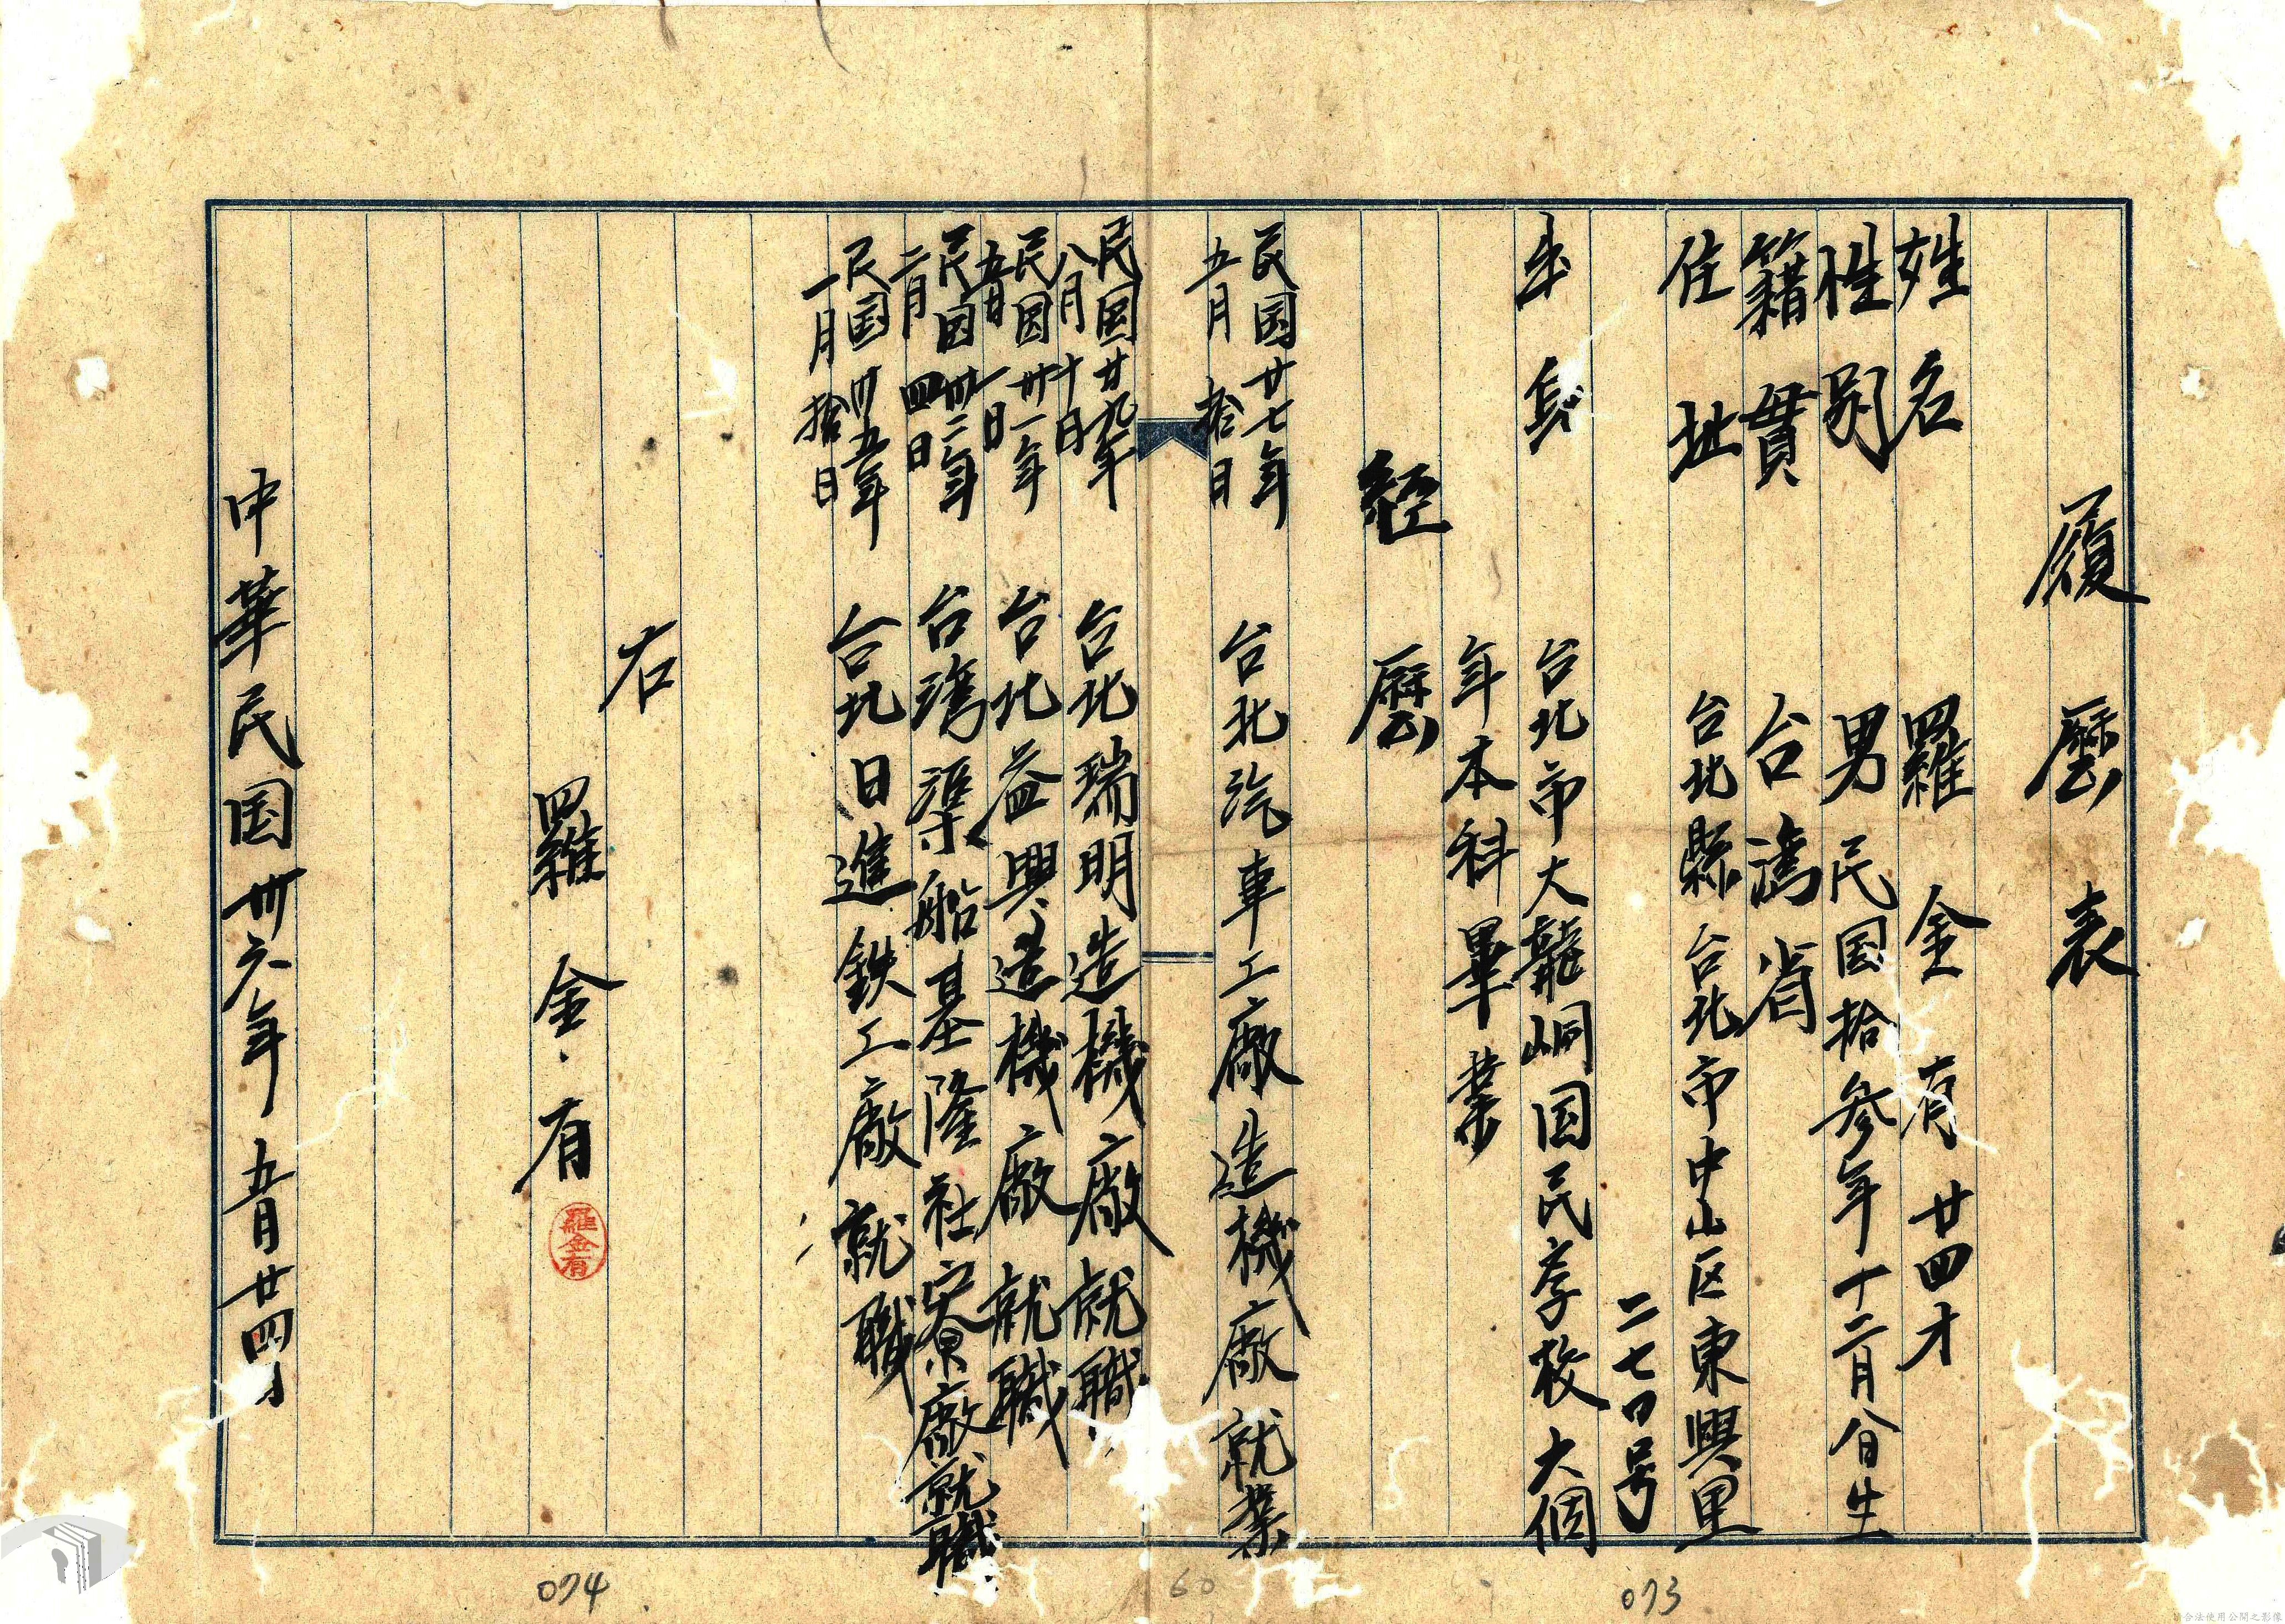 履歷表
姓名　羅金有　廿四才
性別　男　民国拾參年十二月八日生
籍貫　台湾省
住址　台北縣台北市中山区東興里
二七〇号
出身　台北市大龍峒国民学校六個
年本科畢業
經歷
民国廿七年五月拾日　台北汽車工廠造機廠就業
民国廿九年八月十日　台北瑞明造機廠就職
民国卅一年五月一日　台北益興造機廠就職
民国卅三年二月四日　台湾渠船基隆社寮廠就職
民国卅五年一月拾日　台北日進鉄工廠就職
右
羅金有
羅金有
中華民国卅六年五月廿四日
074
60
073